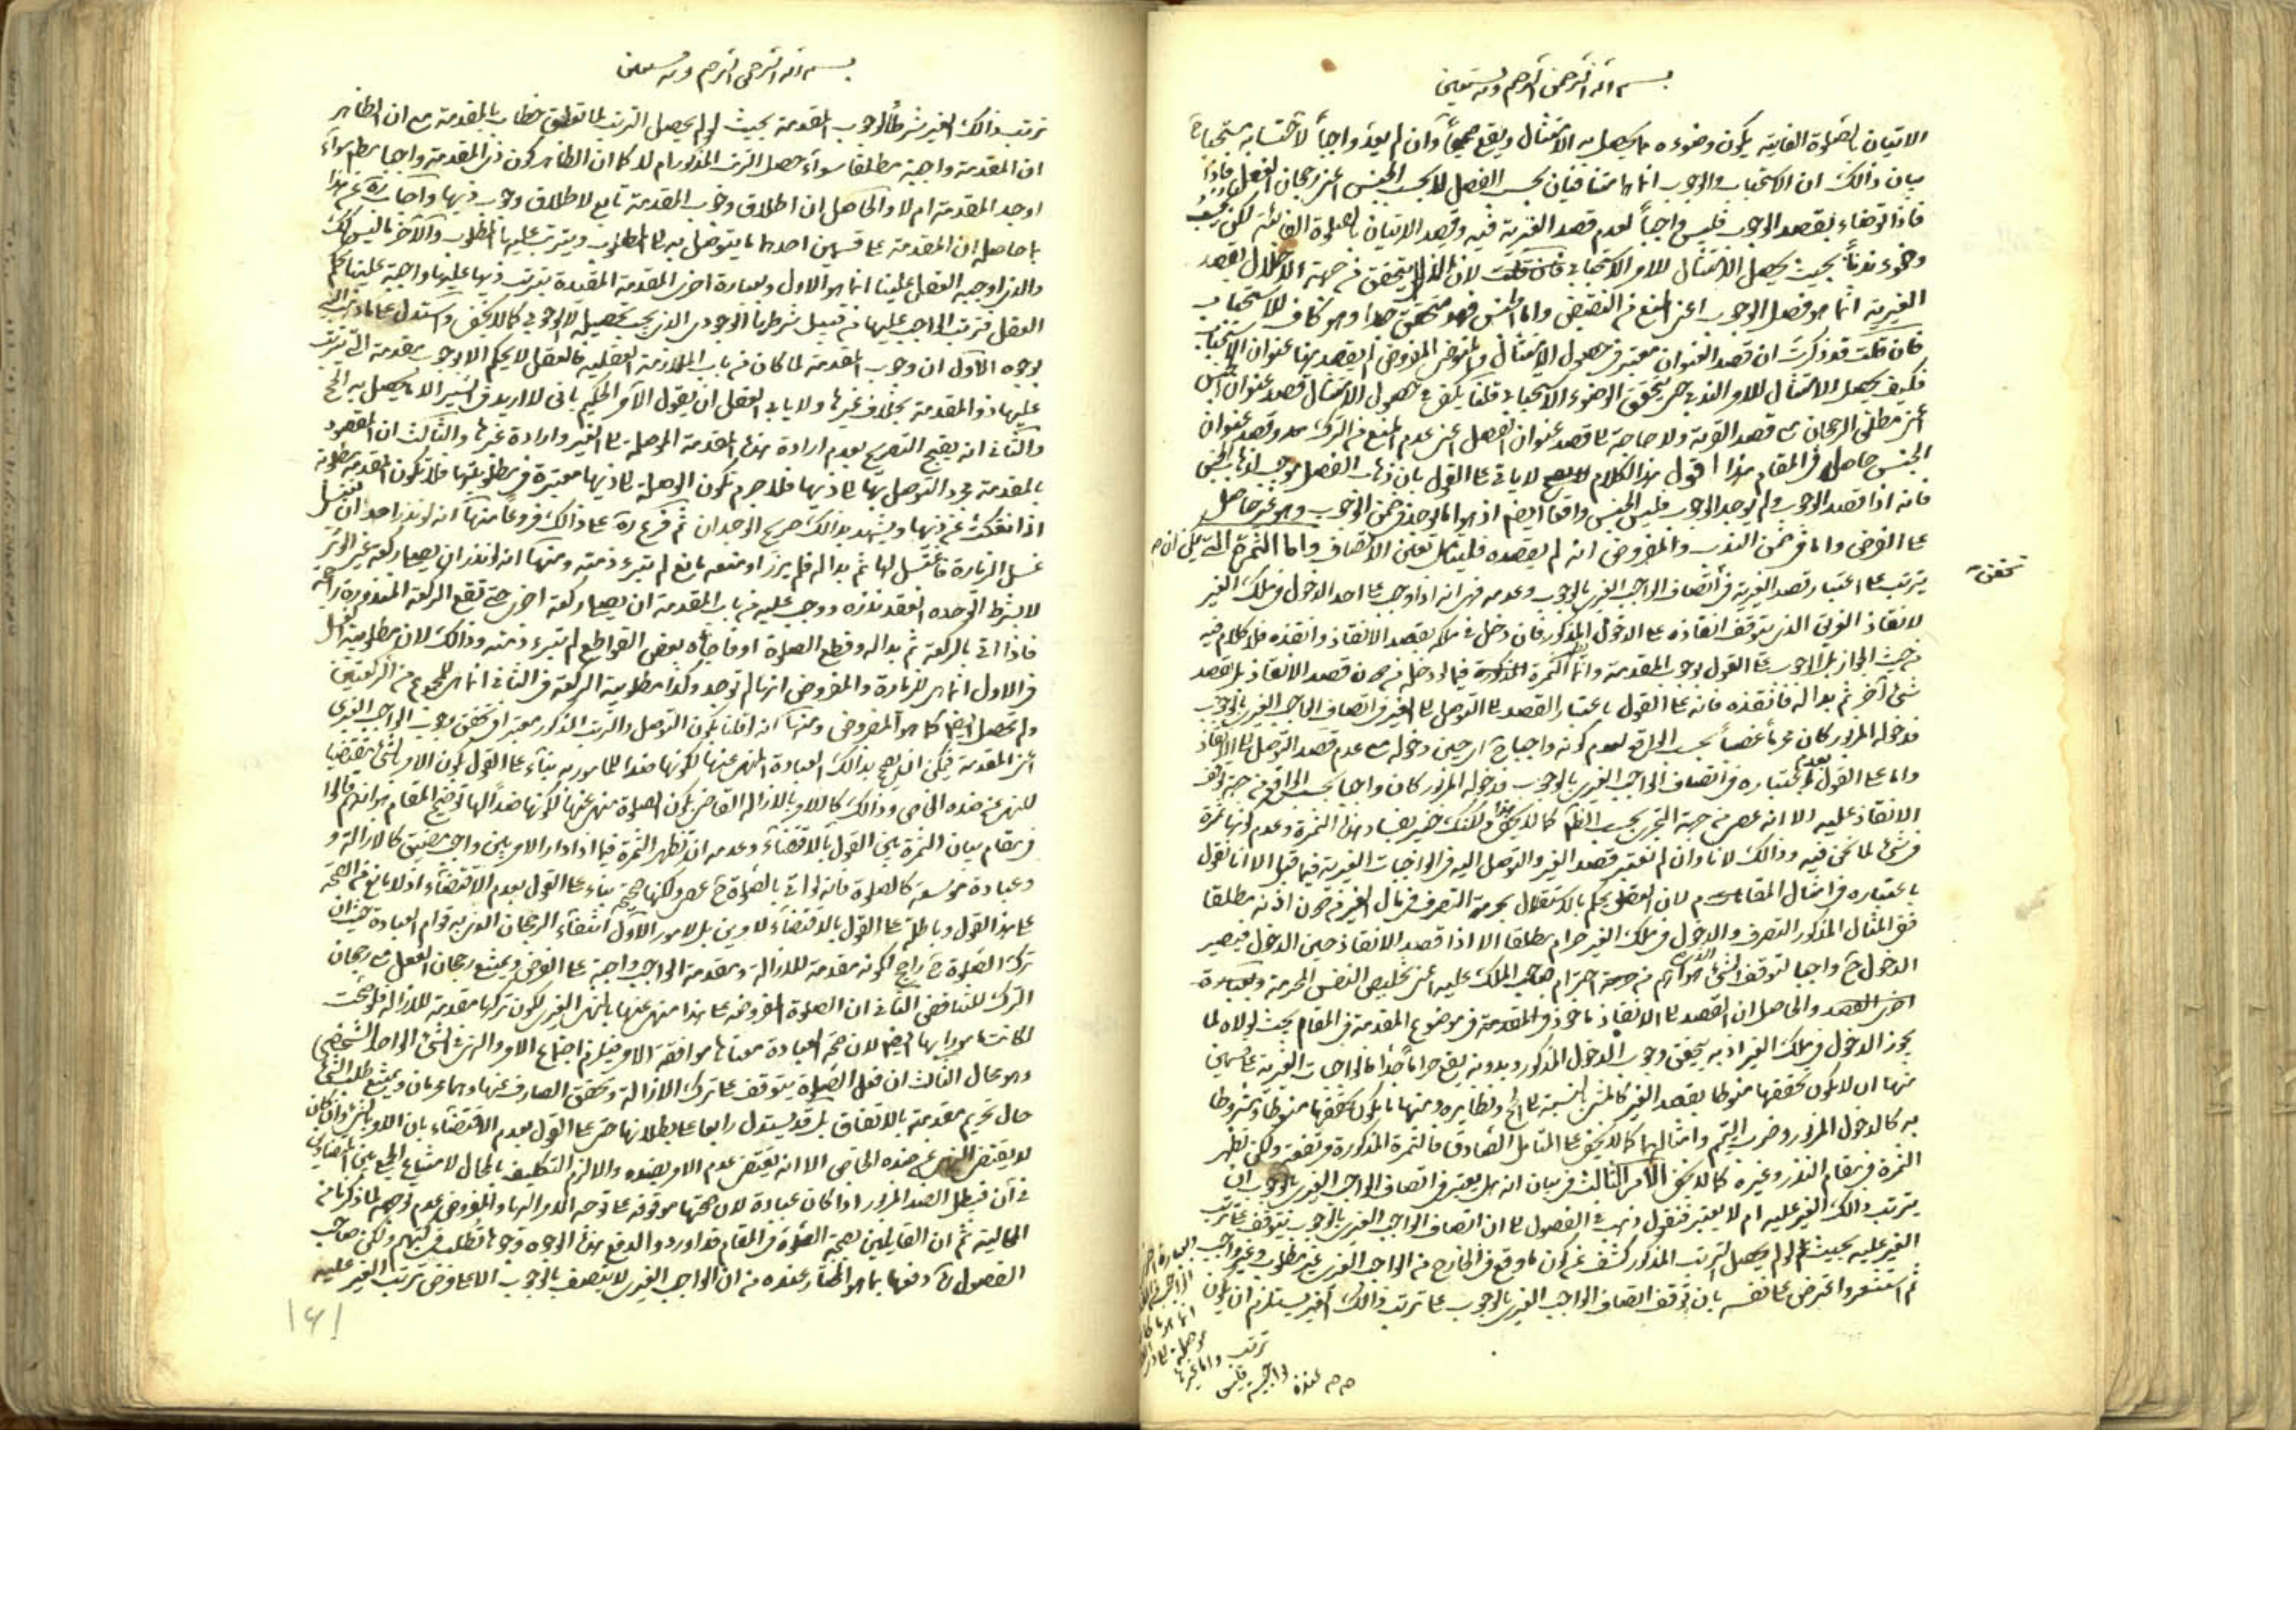 بسم الله الرحمن الرحيم وبه نستعين
الاتيان بالصلوة الفايتة يكون وضوءه مما يحصل به الامتثال ويقع صحيحاً وان لم يعد واجباً لاتصافه بالاستحباب
بيان ذالك ان الاستحباب والوجوب انما هما متنافيان بحسب الفصل لا بحسب الجنس اعنى رجحان الفعل فاذا
فاذا توضاء بقصد الوجوب فليس واجباً لعدم قصد الغيرية فيه وقصد الاتيان بالصلوة الفائتة لكن
وضوء ندباً بحيث يحصل الامتثال للامر الاستحبابى لان الذى لا يتحقق من جهة الاخلال بقصد
الغيرية انما هو فصل الوجوب اعنى المنع من النقيض واما الجنس فهو متحقق جداً وهو كاف للاستحباب
فان قلت قد ذكرت ان قصد العنوان معتبر فى حصول الامتثال والمفروض لم يقصد بها عنوان الاستحباب
فكيف يحصل الامتثال للامر الندبى حتى يتحقق الوضوء الاستحبابى قلنا يكفى فى حصول الامتثال قصد عنوان الجنس
اعنى مطلق الرجحان مع قصد القربة ولا حاجة الى قصد عنوان الفصل اعنى عدم المنع من الترك وقصد عنوان
الجنس حاصل فى المقام هذا اقول هذا الكلام لا ياتى على القول بان ذهاب الفصل موجب لذهاب الجنس
فانه اذا قصد الوجوب ولم يوجد الوجوب فليس الجنس واقعاً ايضا اذ هو اما يوجد فى ضمن الوجوب وهو غير حاصل
على الفرض واما فى ضمن الندب والمفروض انه لم يقصده فليتامل تعين الانصاف واما الثمرة التى يمكن ان
يترتب على اعتبار قصد الغيرية فى اتصاف الواجب الغيرى بالوجوب وعدمه فهى انه اذا وجب على احد الدخول فى ملك الغير
لانقاذ الغريق الذى يتوقف انقاذه على الدخول المذكور فان دخل فى ملكه بقصد الانقاذ وانقذه فلا كلام فيه
من حيث الجواز بل الوجوب على القول بوجوب المقدمة وانما الثمرة فيما لو دخله من دون قصد الانقاذ بل بقصد
شىء آخر ثم بدا له فانقذه فانه على القول باعتبار القصد الى التوصل الى الغير فى اتصاف الواجب الغيرى بالوجوب
فدخوله المزبور كان محرماً غصباً بحسب الواقع لعدم كونه واجباً ح اى حين دخوله مع عدم قصد التوصل الى الانقاذ
واما على القول بعدم اعتباره فى اتصاف الواجب الغيرى بالوجوب فدخوله المزبور كان واجبا بحسب الواقع من جهة توقف
الانقاذ عليه الا انه عصى من جهة التجرى بحسب الظاهر كما لا يخفى هذا ولكنك خبير بفساد هذه الثمرة وعدم كونها ثمرة
فى شىء لما نحن فيه وذالك لانا وان لم نعتبر قصد الغير والتوصل اليه فى الواجبات الغيرية فيما قبل الا انا نقول
باعتباره فى امثال المقام لان العقل يحكم بالاستقلال بحرمة التصرف فى مال الغير من دون اذنه مطلقا
ففى المثال المذكور التصرف والدخول فى ملك الغير حرام مطلقا الا اذا قصد الانقاذ حين الدخول فيصير
الدخول ح واجبا لتوقف الشىء الذى هو اهم من احترام صاحب الملك عليه اعنى تخليص النفس المحرمة وبعبارة
اخرى والحاصل ان القصد الى الانقاذ ماخوذ فى المقدمة فى موضوع المقدمة فى المقام بحيث لولاه لما
يجوز الدخول فى ملك الغير اذ به يتحقق وجوب الدخول المذكور وبدونه يقع حراماً جداً فالواجبات الغيرية على قسمين
منها ان لا يكون تحققها منوطا بقصد الغير كالمشى بالنسبة الى الحج ونظايره ومنها ما يكون تحققها منوطا ومشروطا
به كالدخول المزبور وضرب اليتيم وامثالهما كما لا يخفى على المتامل الصادق فالثمرة المذكورة مرتفعة ولكن تظهر
الثمرة فى مقام النذر وغيره كما لا يخفى الامر الثالث فى بيان انه هل يعتبر فى اتصاف الواجب الغيرى بالوجوب ان
يترتب ذالك الغير عليه ام لا يعتبر فنقول ذهب فى الفصول الى ان اتصاف الواجب الغيرى بالوجوب يتوقف على ترتب
الغير عليه بحيث لو لم يحصل الترتب المذكور كشف عن كون ما وقع فى الخارج من الواجب الغيرى غير مطلوب وغير واجب
ثم استشعر واعترض على نفسه بان توقف اتصاف الواجب الغيرى بالوجوب على ترتب ذالك الغير يستلزم ان يكون
وبعبارة اخرى
ترتب
واما غيرها
فليس
واجبة
عنده
بسم الله الرحمن الرحيم وبه نستعين
ترتب ذالك الغير شرطاً لوجوب المقدمة بحيث لو لم يحصل الترتب لما تعلق خطاب بالمقدمة مع ان الظاهر
ان المقدمة واجبة مطلقا سواء حصل الترتب المذكور ام لا كما ان الظاهر كون ذى المقدمة واجبا مطلقا سواء
اوجد المقدمة ام لا والحاصل ان اطلاق وجوب المقدمة تابع لاطلاق وجوب ذيها واجاب ره عن هذا
بما حاصله ان المقدمة على قسمين احدهما ما يتوصل به الى المطلوب ويترتب عليها المطلوب والآخر ما ليس كك
والذى اوجبه العقل علينا انما هو الاول وبعبارة اخرى المقدمة المقيدة بترتب ذيها عليها واجبة علينا بحكم
العقل فترتب الواجب عليها من قبيل شرطها الوجودى الذى يجب تحصيله لا الوجوبى كما لا يخفى واستدل على ما ذهب اليه
بوجوه الاول ان وجوب المقدمة لما كان من باب الملازمة العقلية فالعقل لا يحكم الا بوجوب مقدمة التى يترتب
عليها ذو المقدمة بخلاف غيرها ولا يابى العقل ان يقول الآمر الحكيم بانى لا اريد من السير الا ما يحصل به الحج
والثانى انه يقبح التصريح بعدم ارادة هذه المقدمة الموصلة الى الغير وارادة غيرها والثالث ان المقصود
بالمقدمة مجرد التوصل بها الى ذيها فلا جرم تكون الوصلة الى ذيها معتبرة فى مطلوبيتها فلا تكون المقدمة مطلوبة
اذا انفكت عن ذيها ويشهد بذالك صريح الوجدان ثم فرع ره على ذالك فروعاً منها انه لو نذر احد ان يغتسل
غسل الزيارة فاغتسل لها ثم بدا له فلم يزر او منعه مانع لم تبرء ذمته ومنها انه لو نذر ان يصلى ركعة غير الوتر
لا بشرط الوحدة انعقد نذره ووجب عليه من باب المقدمة ان يصلى ركعة اخرى حتى تقع الركعة المنذورة
فاذا اتى بالركعة ثم بدا له وقطع الصلوة او فاجاه بعض القواطع لم تبرء ذمته وذالك لان مطلوبية الغسل
فى الاول انما هى للزيارة والمفروض انها لم توجد وكذا مطلوبية الركعة فى الثانى انما هى للمجموع من الركعتين
ولم يحصل ايضا كما هو المفروض ومنها انه اذا قلنا بكون التوصل والترتب المذكور معتبراً فى تحقق وجوب الواجب الغيرى
اعنى المقدمة فيمكن ان يصح بذالك العبادة المنهى عنها لكونها ضداً للمامور به بناء على القول بكون الامر بالشىء مقتضيا
للنهى عن ضده الخاص وذالك كالامر بالازالة القاضى بكون الصلوة منهى عنها لكونها ضداً لها توضيح المقام هو انهم قالوا
فى مقام بيان الثمرة بين القول بالاقتضاء وعدمه ان تظهر الثمرة فيما اذا دار الامر بين واجب مضيق كالازالة و
وعبادة موسعة كالصلوة فانه لو اتى بالصلوة ح عصى ولكنها صحيحة بناء على القول بعدم الاقتضاء اذ لا مانع من الصحة
على هذا القول وباطلة على القول بالاقتضاء لامور الاول انتفاء الرجحان الذى به قوام العبادة حيث ان
ترك الصلوة ح راجح لكونه مقدمة للازالة ومقدمة الواجب واجبة على الفرض ويمتنع رجحان الفعل مع رجحان
الترك للتناقض الثانى ان الصلوة المفروضة على هذا منهى عنها بالنهى الغيرى لكون تركها مقدمة للازالة فلو صحت
لكانت مامورا بها ايضا لان صحة العبادة معناها موافقة الامر فيلزم اجتماع الامر والنهى فى الشىء الواحد الشخصى
وهو محال الثالث ان فعل الصلوة يتوقف على ترك الازالة وتحقق الصارف عنها وهما محرمان ويمتنع طلب الشىء
حال تحريم مقدمته بالاتفاق بل قد يستدل رابعا على بطلانها حتى على القول بعدم الاقتضاء بان الامر بالشىء وان كان
لا يقتضى النهى عن ضده الخاص الا انه يقتضى عدم الامر بضده والا لزم التكليف بالمحال لامتناع الجمع بين الضدين
فى آن فيبطل الضد المزبور اذا كان عبادة لان صحتها موقوفة على توجه الامر اليها والمفروض عدم توجهه لما ذكرنا من
المحالية ثم ان القايلين بصحة الصلوة فى المقام قد اوردوا لدفع هذه الوجوه وجوها تطلب فى كتبهم ولكن صاحب
الفصول ره دفعها بما هو المختار عنده من ان الواجب الغيرى لا يتصف بالوجوب الا على فرض ترتب الغير عليه